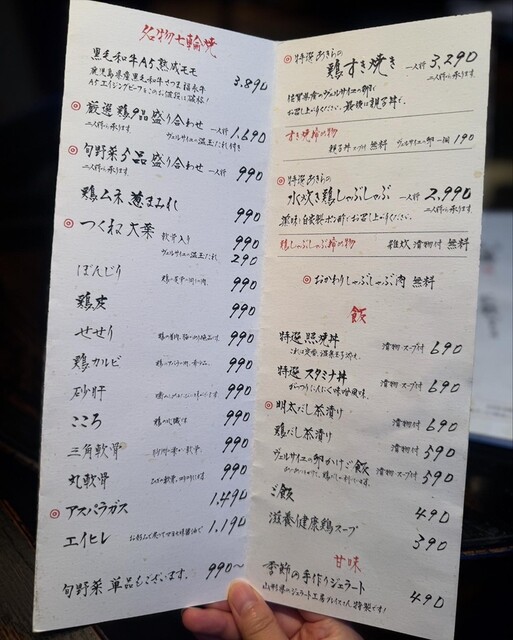 名物七輪焼
黒毛和牛A5熟成モモ 3,890
鹿児島県産黒毛和牛さつま福永牛
◎厳選鶏9品盛り合わせ 一人前 1,690
二人前から承ります
◎旬野菜5品盛り合わせ 一人前 990
二人前から承ります
鶏ムネ葱まみれ 990
◎つくね大葉 軟骨入り 990
290
ぼんじり 990
鶏皮 990
せせり 990
鶏カルビ 990
砂肝 990
こころ 990
三角軟骨 990
丸軟骨 990
◎アスパラガス 1,490
エイヒレ 1,190
旬野菜 単品もございます。 990〜
◎特選あきらの
鶏すき焼き 一人前 3,290
二人前から承ります
佐賀県産のヴェルサイユの卵で
お召し上がりください。最後は親子丼で。
すき焼き締め物
親子丼 スープ付 無料 ヴェルサイユの卵一個 190
◎特選あきらの
水炊き鶏しゃぶしゃぶ 一人前 2,990
二人前から承ります
薬味と自家製ポン酢でお召し上がりください。
鶏しゃぶしゃぶ締め物 雑炊 漬物付 無料
◎おかわりしゃぶしゃぶ肉 無料
飯
特選 照焼丼 漬物・スープ付 690
特選 スタミナ丼 漬物・スープ付 690
がっつりにんにく味噌風味。
◎明太だし茶漬け 漬物付 690
鶏だし茶漬け 漬物付 590
ヴェルサイユの卵かけご飯 漬物・スープ付 590
ご飯 490
滋養健康鶏スープ 390
甘味
季節の手作りジェラート 490